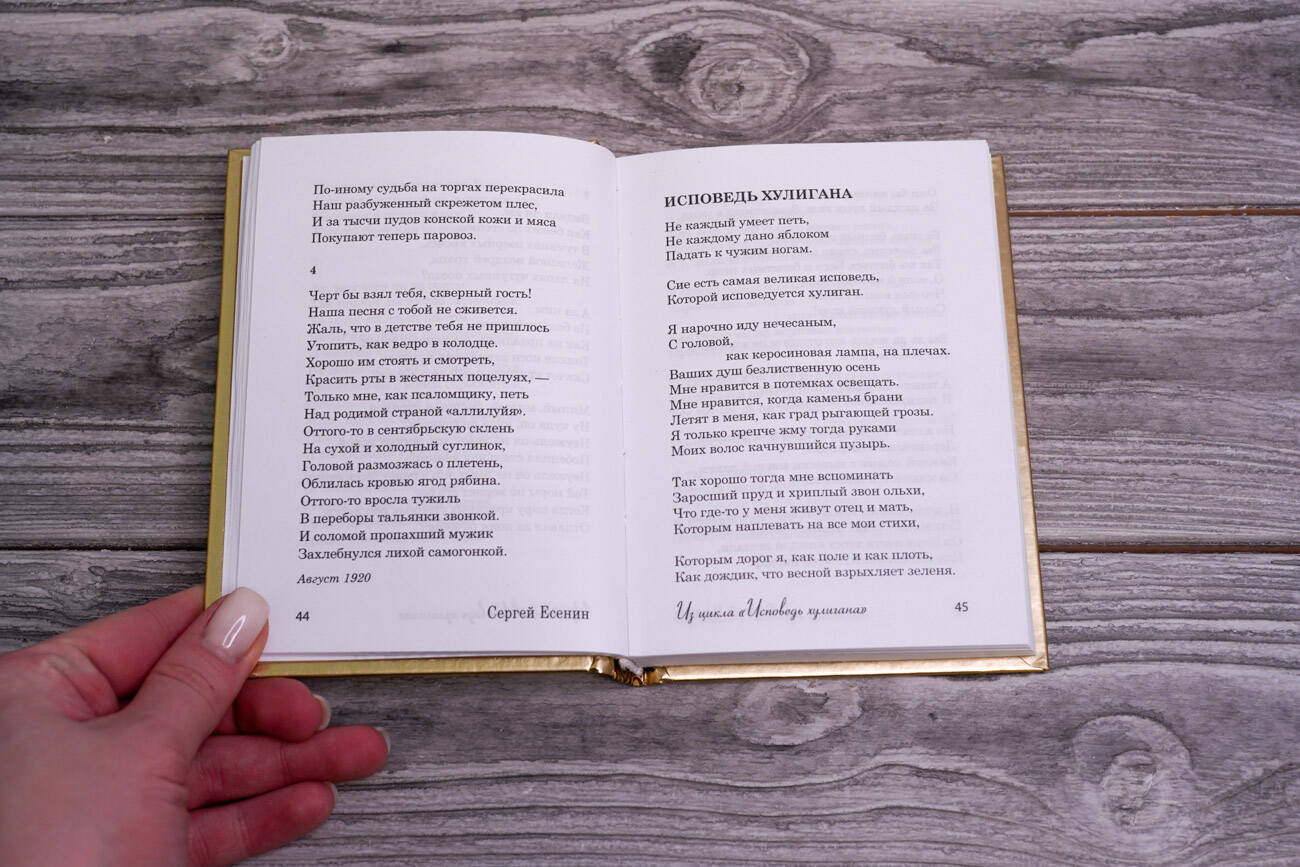 По-иному судьба на торгах перекрасила
Наш разбуженный скрежетом плес,
И за тысчи пудов конской кожи и мяса
Покупают теперь паровоз.
4
Черт бы взял тебя, скверный гость!
Наша песня с тобой не сживется.
Жаль, что в детстве тебя не пришлось
Утопить, как ведро в колодце.
Хорошо им стоять и смотреть,
Красить рты в жестяных поцелуях, —
Только мне, как псаломщику, петь
Над родимой страной «аллилуйя».
Оттого-то в сентябрьскую склень
На сухой и холодный суглинок,
Головой размозжась о плетень,
Облилась кровью ягод рябина.
Оттого-то вросла тужиль
В переборы тальянки звонкой.
И соломой пропахший мужик
Захлебнулся лихой самогонкой.
Август 1920
44 Сергей Есенин
ИСПОВЕДЬ ХУЛИГАНА
Не каждый умеет петь,
Не каждому дано яблоком
Падать к чужим ногам.
Сие есть самая великая исповедь,
Которой исповедуется хулиган.
Я нарочно иду нечесаным,
С головой,
как керосиновая лампа, на плечах.
Ваших душ безлиственную осень
Мне нравится в потемках освещать.
Мне нравится, когда каменья брани
Летят в меня, как град рыгающей грозы.
Я только крепче жму тогда руками
Моих волос качнувшийся пузырь.
Так хорошо тогда мне вспоминать
Заросший пруд и хриплый звон ольхи,
Что где-то у меня живут отец и мать,
Которым наплевать на все мои стихи,
Которым дорог я, как поле и как плоть,
Как дождик, что весной взрыхляет зеленя.
Из цикла «Исповедь хулигана» 45